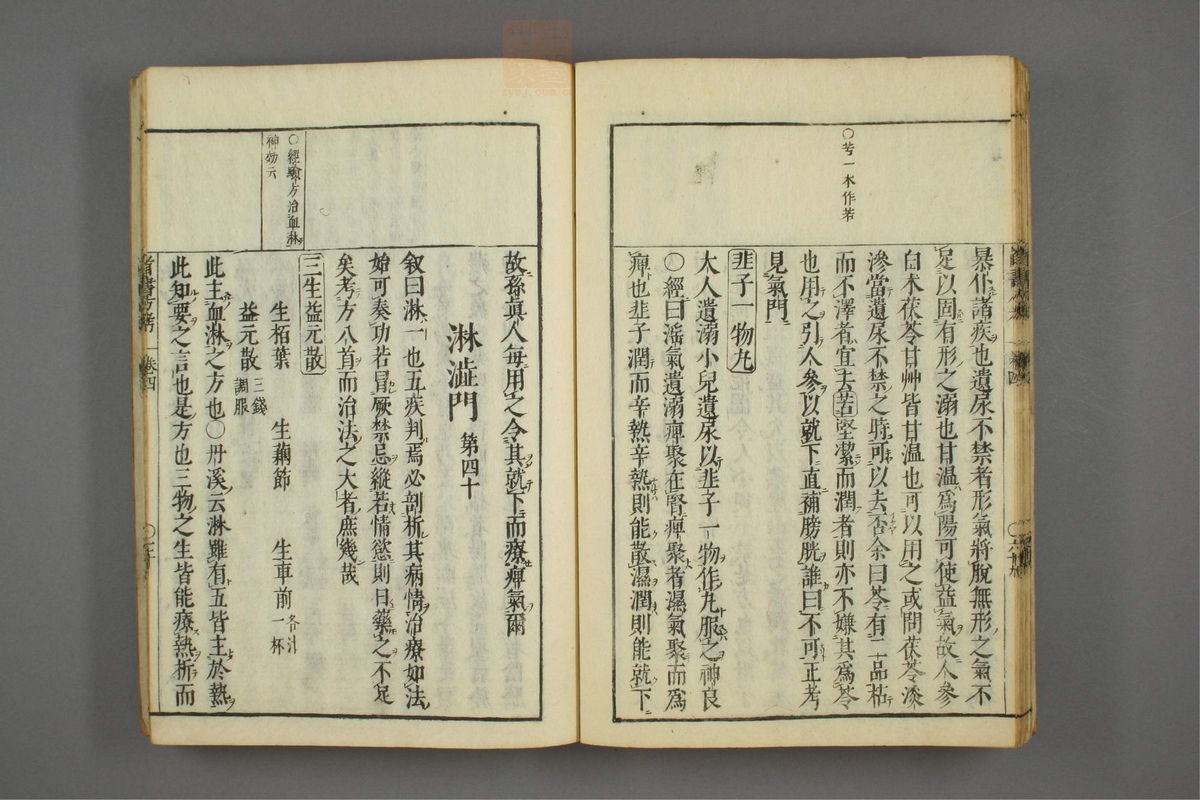 ○苦一本作若
暴仆諸疾也遺尿不禁者形氣將脫無形之氣不
足以固有形之溺也甘溫爲陽可使益氣故人參
白朮茯苓甘艸皆甘溫也可以用之或問茯苓淡
滲當遺尿不禁之時可以去否余曰苓有二品枯
而不澤者宜主苦堅潔而潤者則亦不嫌其爲苓
也用之引人參以就下直補膀胱誰曰不可正考
見氣門
韭子一物丸
大人遺溺小兒遺尿以韭子一物作丸服之神良
○經曰滛氣遺溺痺聚在腎痺聚者濕氣聚而爲
痺也韭子潤而辛熱辛熱則能散濕潤則能就下
故孫眞人每用之令其就下而療痺氣爾
淋澁門 第四十
叙曰淋一也五疾判焉必剖析其病情治療如法
始可奏功若冒厥禁忌縱若情慾則日藥之不足
矣考方八首而治法之大者庶幾哉
○經驗方治血淋
神効云
三生益元散
生柏葉 生藕節 生車前 各汁一杯
益元散 三錢調服
此主血淋之方也○丹溪云淋雖有五皆主於熱
此知要之言也是方也三物之生皆能療熱析而
卷四